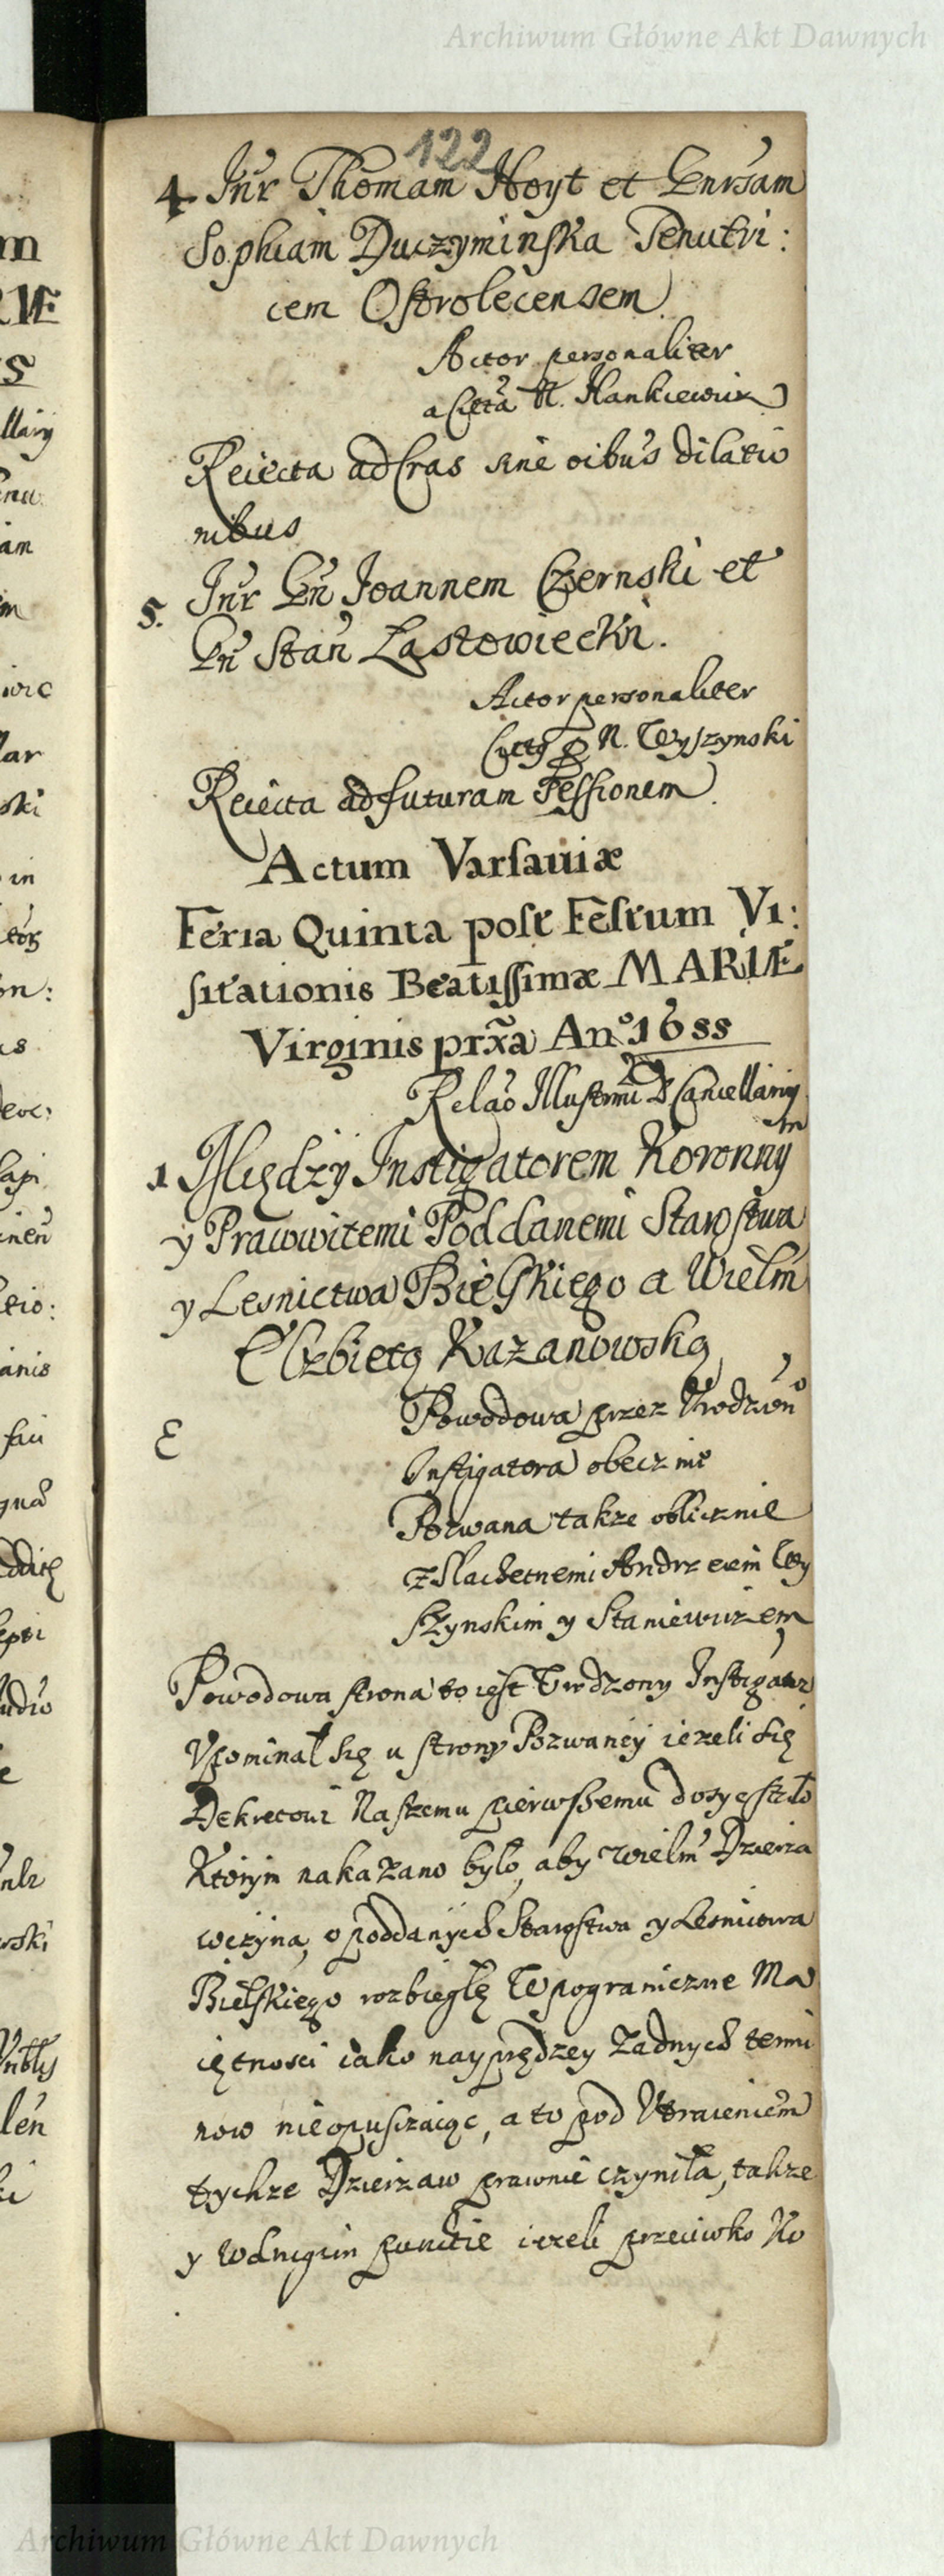 Archiwum Główne Akt Dawnych
122
4. Inr Thomam Hoyt et Gnrsam
Sophiam Duczyminska Tenutri:
cem Ostrolecensem
Actor personaliter
a Citta N. Hankiewicz
Reiecta ad Cras sine oibus dilatio
nibus
5. Inr Gn Joannem Czernski et
Gn Stan Lastowiecki.
Actor personaliter
N. Wyszynski
Reiecta ad futuram Sessionem
Actum Varsauiæ
Feria Quinta post Festum Vi:
sitationis Beatissimæ MARIÆ
Virginis prxa Anº 1655
Relao Illustrmi D Cancellarij
1 Między Instigatorem Koronny
m
y Prawwitemi Poddanemi Starostwa
y Lesnictwa Bielskiego a Wielm
Elzbietą Kazanowską
Powodowa przez Urodzon°
Instigatora obecznie
Pozwana takze oblicznie
z Slachetnemi Andrzeiem Wy
szynskim y Staniewiczem
Powodowa strona to iest Urdzony Instigator
Vpominał się u strony Pozwaney iezeli się
Dekretowi Naszemu pierwszemu dosyc stało
Ktorym nakazano było, aby Wielm Dzierza
wczyna, o poddanych Starostwa y Lesnictwa
Bielskiego rozbiegłę W pograniczne Ma
iętnosci iako nayprędzey zadnych termi
now nieopusczaiąc, a to pod Utraceniem
tychze Dzierzaw prawnie czyniła, takze
y wdrugim punctie iezeli przeciwko No
m
RIÆ
s
llarij
am
ski
in
on:
anis
Archiwum Główne Akt Dawnych